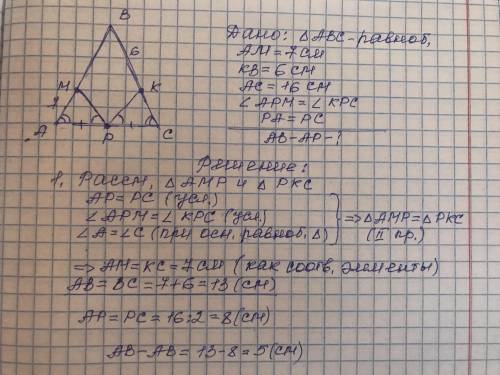 B
6
M
K
7
A
P
C
Дано: △ABC-равноб,
AM=7см
KB=6см
AC=16см
∠APM=∠KPC
PA=PC
AB-AP-?
Решение:
1, Рассм, △AMP и △PKC
AP=PC (усл.)
∠APM=∠KPC (усл.)
∠A=∠C (при осн. равноб, △)
=>△AMP=△PKC
(II пр.)
=> AM=KC=7см (как соотв, элементы)
AB=BC=7+6=13(см)
AP=PC=16:2=8(см)
AB-AB=13-8=5(см)